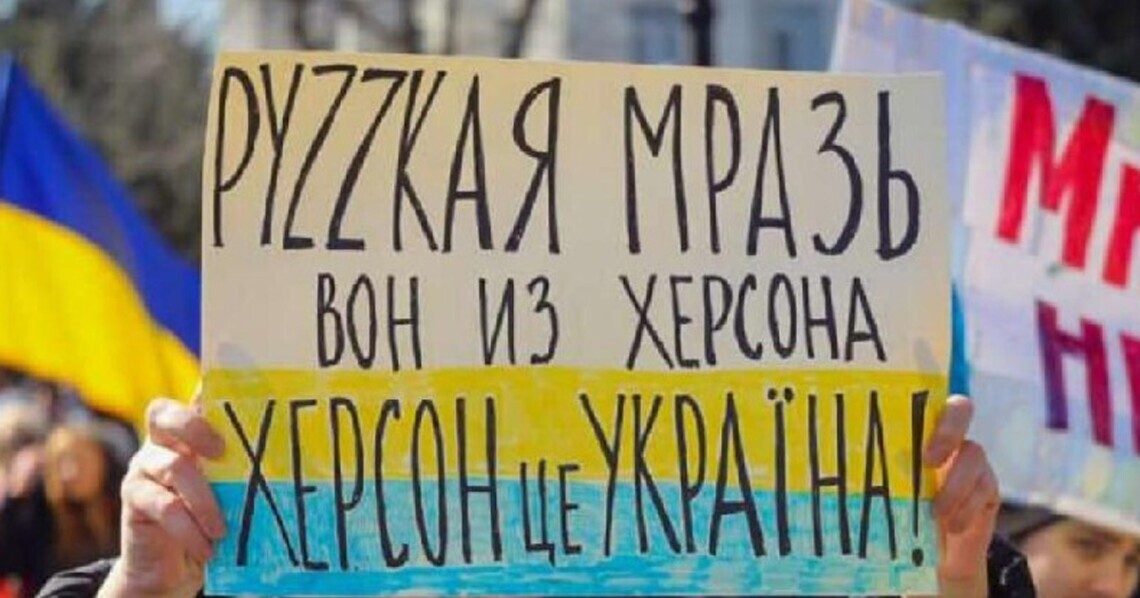 РУZZКАЯ МРАЗЬ
ВОН ИЗ ХЕРСОНА
ХЕРСОН ЦЕ УКРАЇНА!